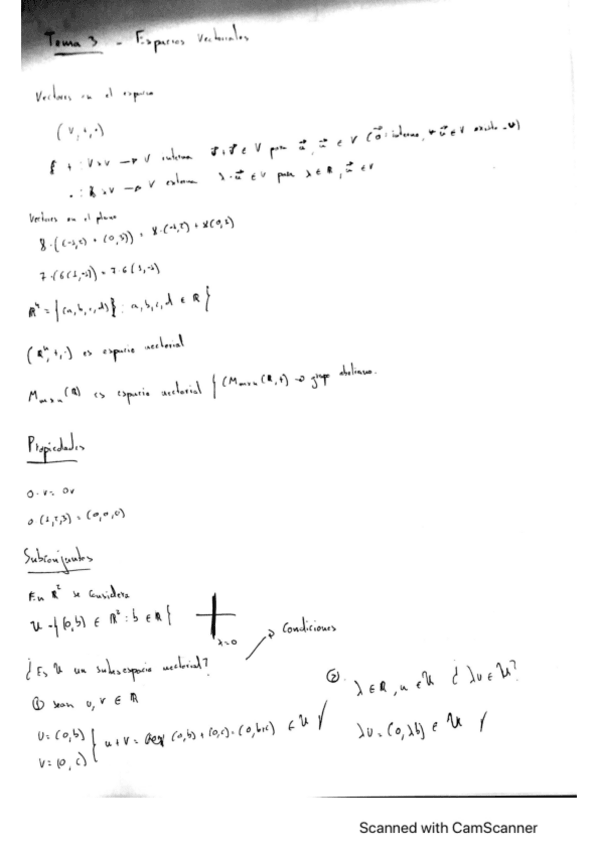 Tema 3 - Espacios Vectoriales
Vectores en el espacio
(V,+,·)
+ : V×V → V interna u+v ∈ V para u, v ∈ V
· : R×V → V externa λ·u ∈ V para λ ∈ R, u ∈ V
Vectores en el plano
8·((-1,2)+(0,3)) = 8·(-1,2)+8(0,3)
7·(6(1,-2)) = 7·6(1,-2)
R⁴ = {(a,b,c,d)} : a,b,c,d ∈ R}
(R⁴,+,·) es espacio vectorial
Mmxn(R) es espacio vectorial { (Mmxn(R,+) → grupo abeliano.
Propiedades
0·v = 0v
0(1,2,3) = (0,0,0)
Subconjuntos
En R² se considera
U={(0,b) ∈ R² : b ∈ R}
λ=0
Condiciones
¿Es U un subespacio vectorial?
① sean u,v ∈ R
u=(0,b)
v=(0,c)
u+v = (0,b)+(0,c)=(0,b+c) ∈ U ✓
② λ∈R, u∈U ¿λu∈U?
λu=(0,λb) ∈ U ✓
Scanned with CamScanner